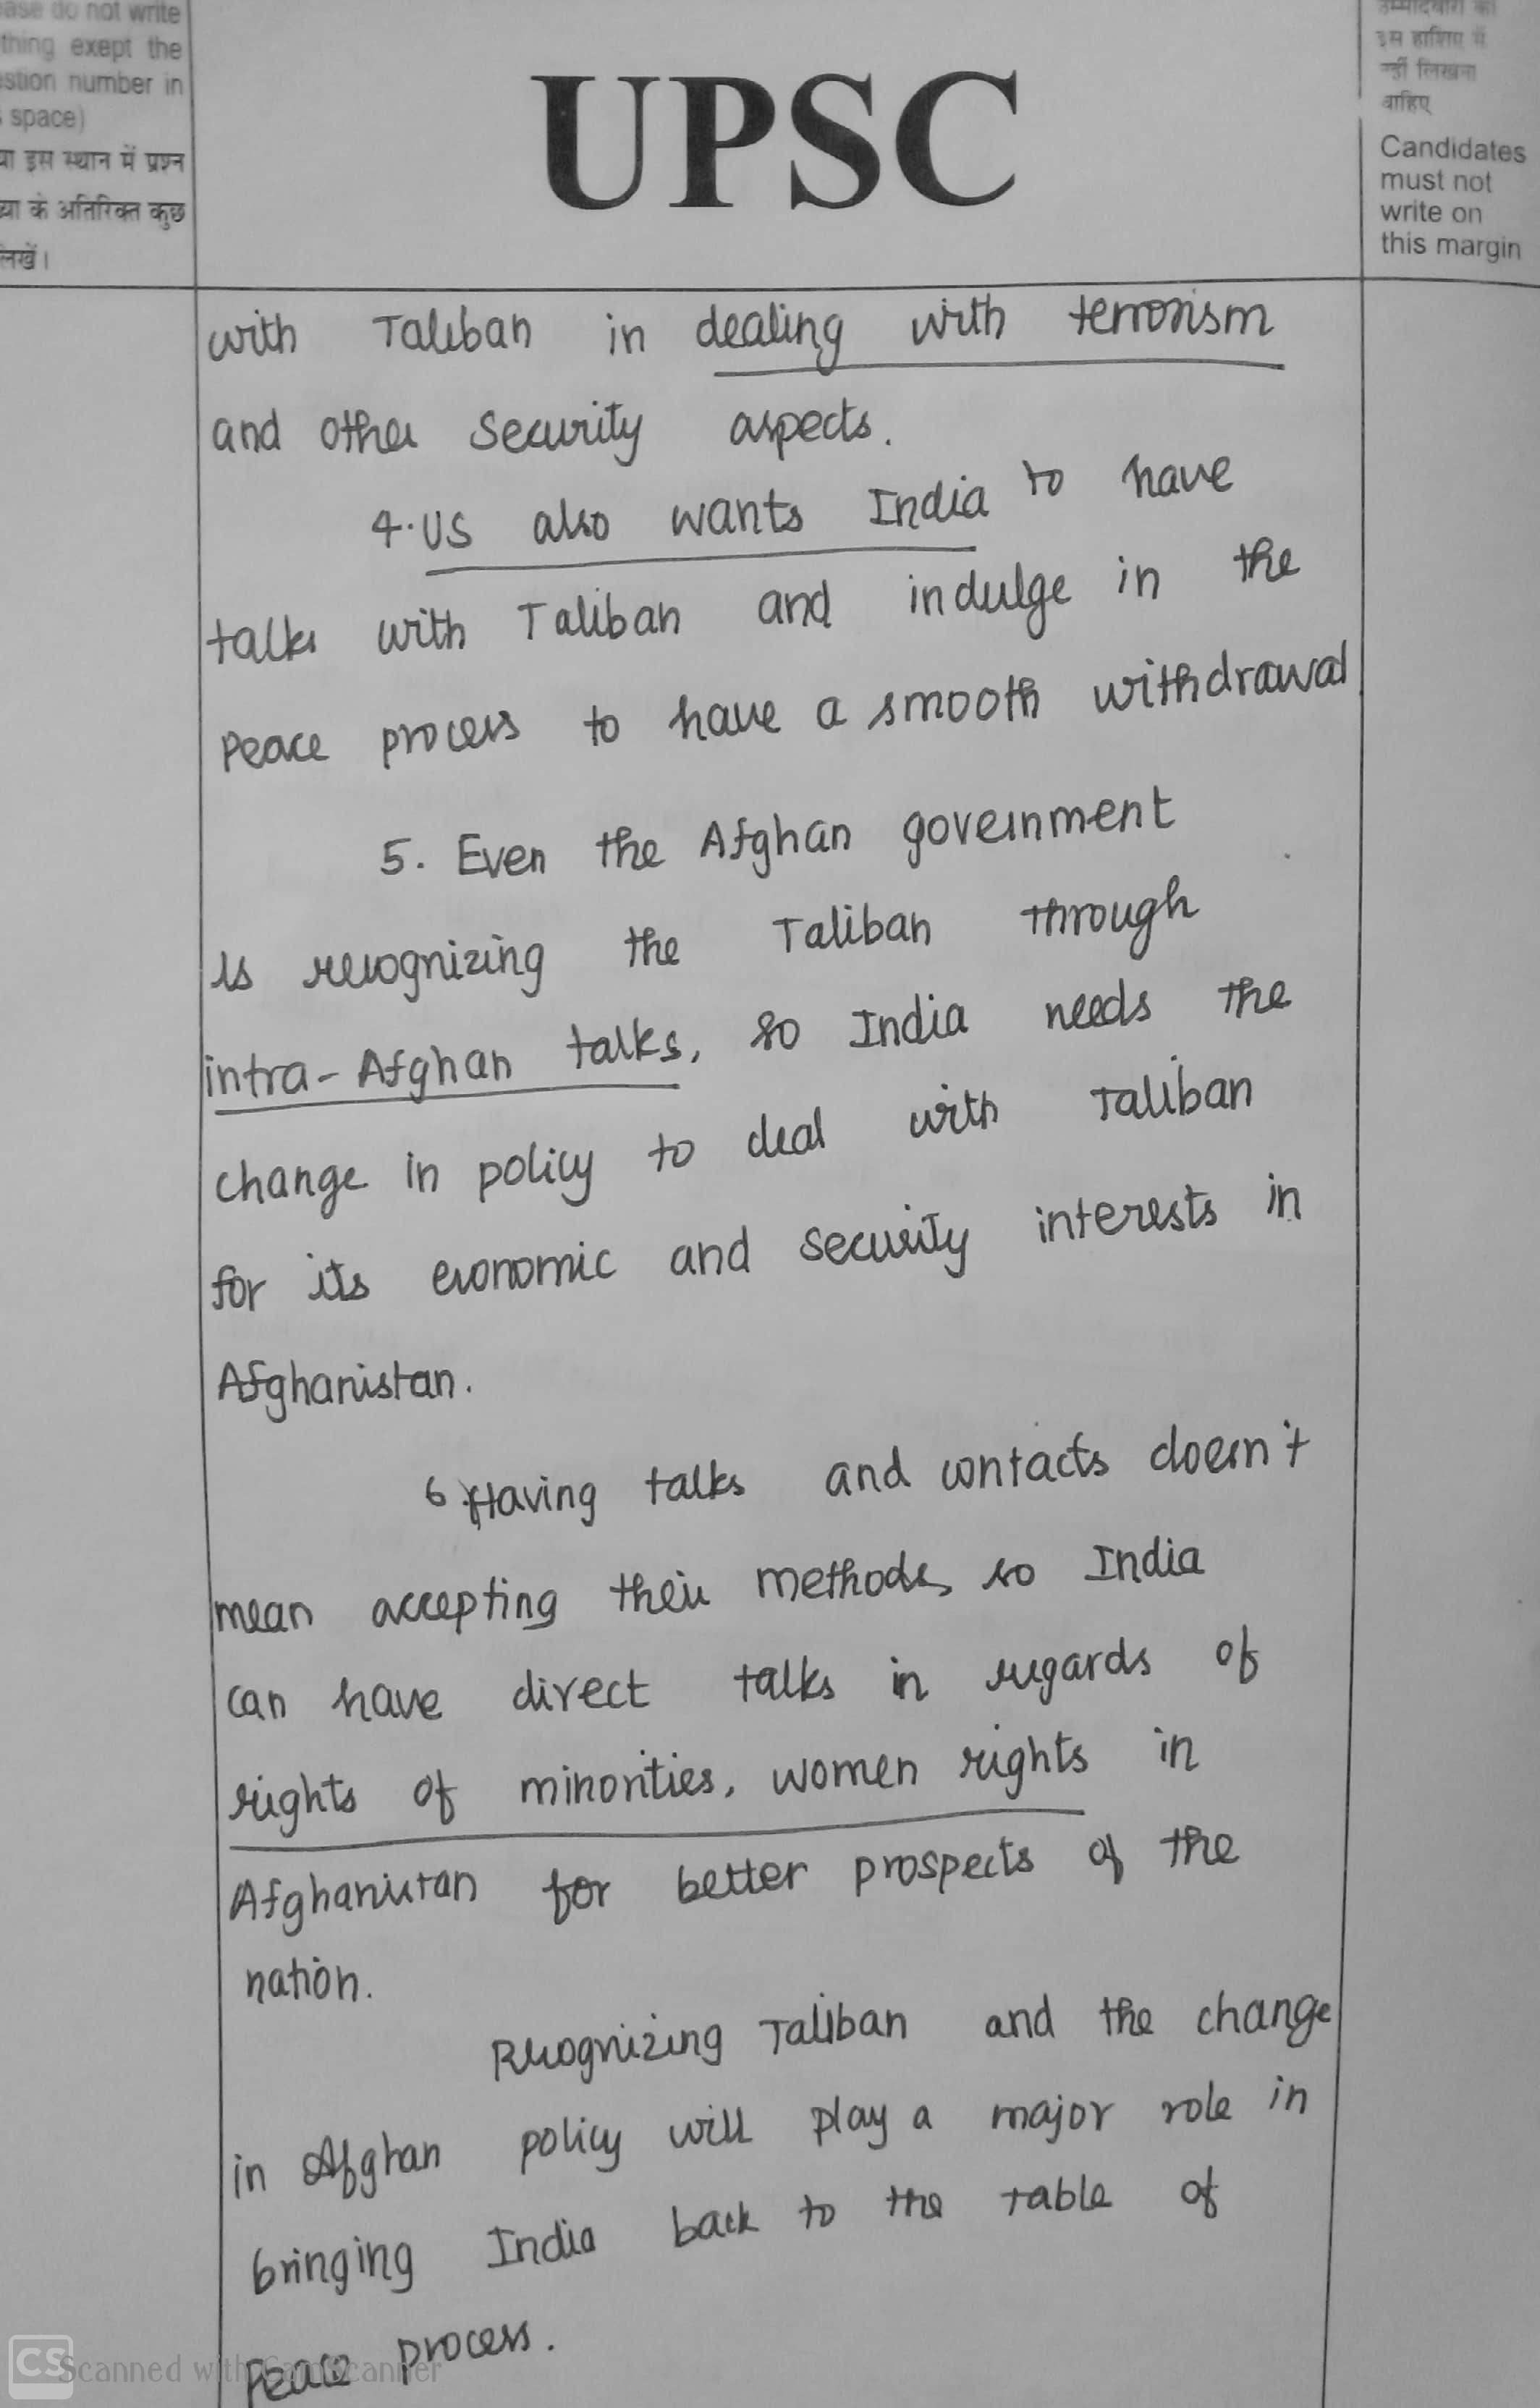 ase do not write
thing exept the
stion number in
space)
इस स्थान में प्रश्न
के अतिरिक्त कुछ
लिखें।
UPSC
उम्मीदवारों को
इस हाशिए में
नहीं लिखना
चाहिए
Candidates
must not
write on
this margin
with Taliban in dealing with terrorism
and other security aspects.
4. US also wants India to have
talks with Taliban and indulge in the
Peace process to have a smooth withdrawal
5. Even the Afghan government
is recognizing the Taliban through
intra-Afghan talks, so India needs the
change in policy to deal with Taliban
for its economic and security interests in
Afghanistan.
6 Having talks and contacts doesn't
mean accepting their methods, so India
can have direct talks in regards of
rights of minorities, women rights in
Afghanistan for better prospects of the
nation.
Recognizing Taliban and the change
in Afghan policy will play a major role in
bringing India back to the table of
Peace process.
CS Scanned with CamScanner